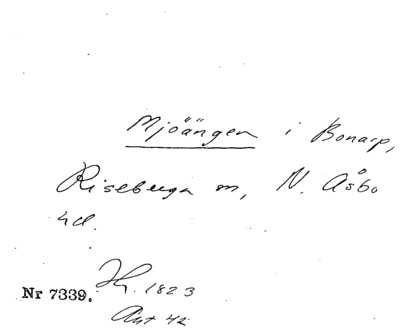 Mjöängen i Bonarp,
Riseberga sn, N. Åsbo
hd.
Nr 7339. Hr. 1823
Ant 42